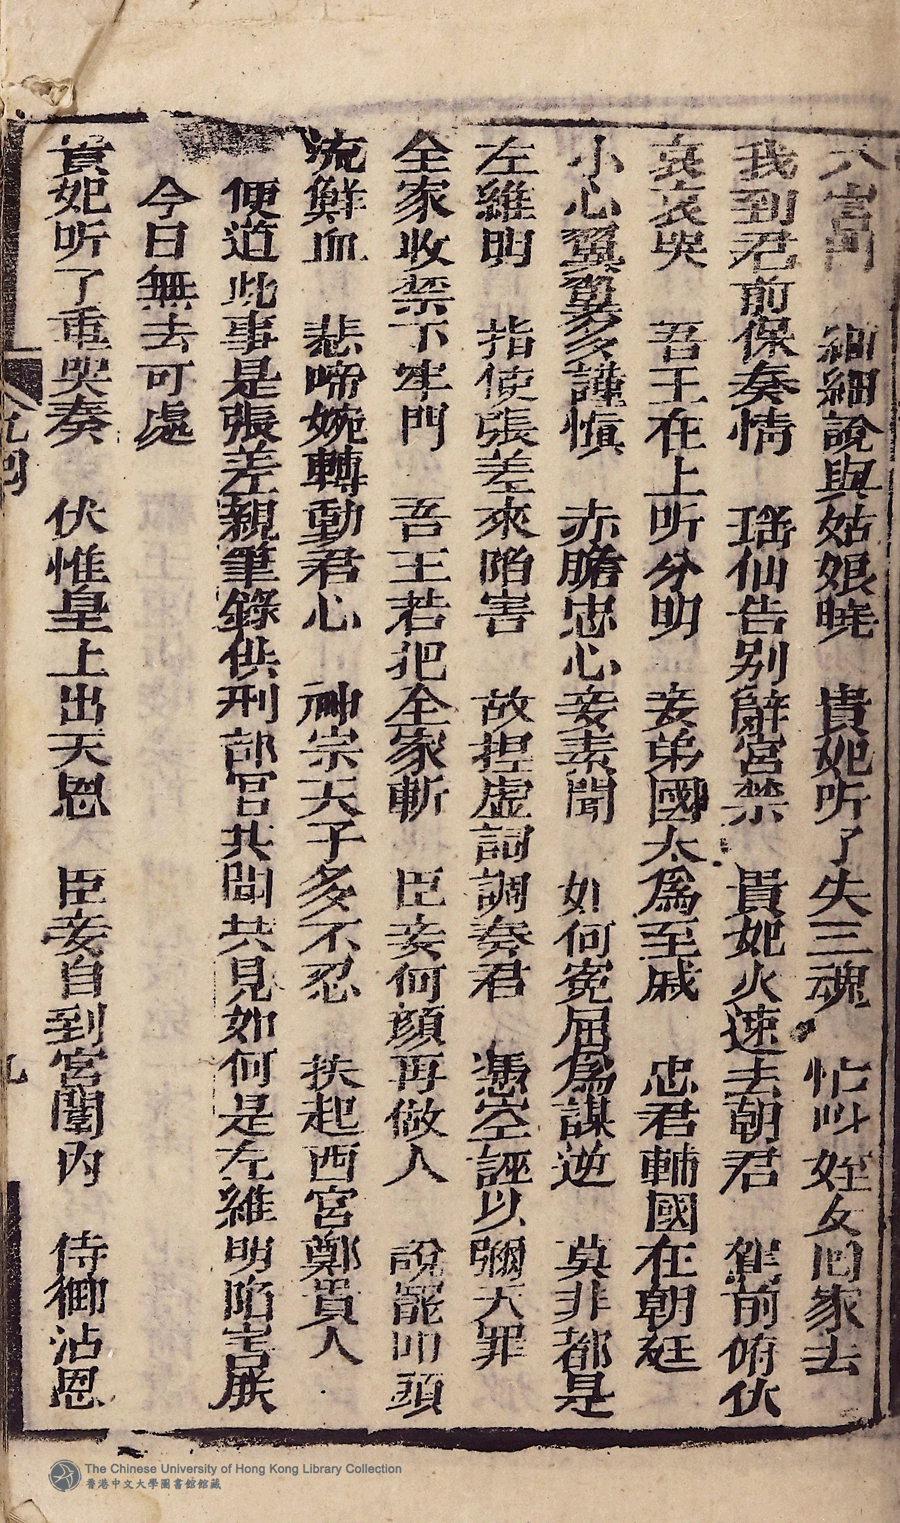 入宮門　細細說與姑娘曉　貴妃听了失三魂　忙叫姪女回家去
我到君前保奏情　瑤仙告别辭宮禁　貴妃火速去朝君　駕前俯伏
哀哀哭　吾王在上听分明　妾弟國太為至戚　忠君輔國在朝廷
小心翼翼多謹慎　赤膽忠心妾素聞　如何寃屈為謀逆　莫非都是
左維明　指使張差來陷害　故捏虛詞謂奏君　憑空誣以彌天罪
全家收禁下牢門　吾王若把全家斬　臣妾何顏再做人　說罷叩頭
流鮮血　悲啼婉轉動君心　神宗天子多不忍　扶起西宮鄭貴人
便道此事是張差親筆錄供刑部官共聞共見如何是左維明陷宅展
今日無去可處
貴妃听了重哭奏　伏惟皇上出天恩　臣妾自到宮闈內　侍御沾恩
九
The Chinese University of Hong Kong Library Collection
香港中文大學圖書館館藏